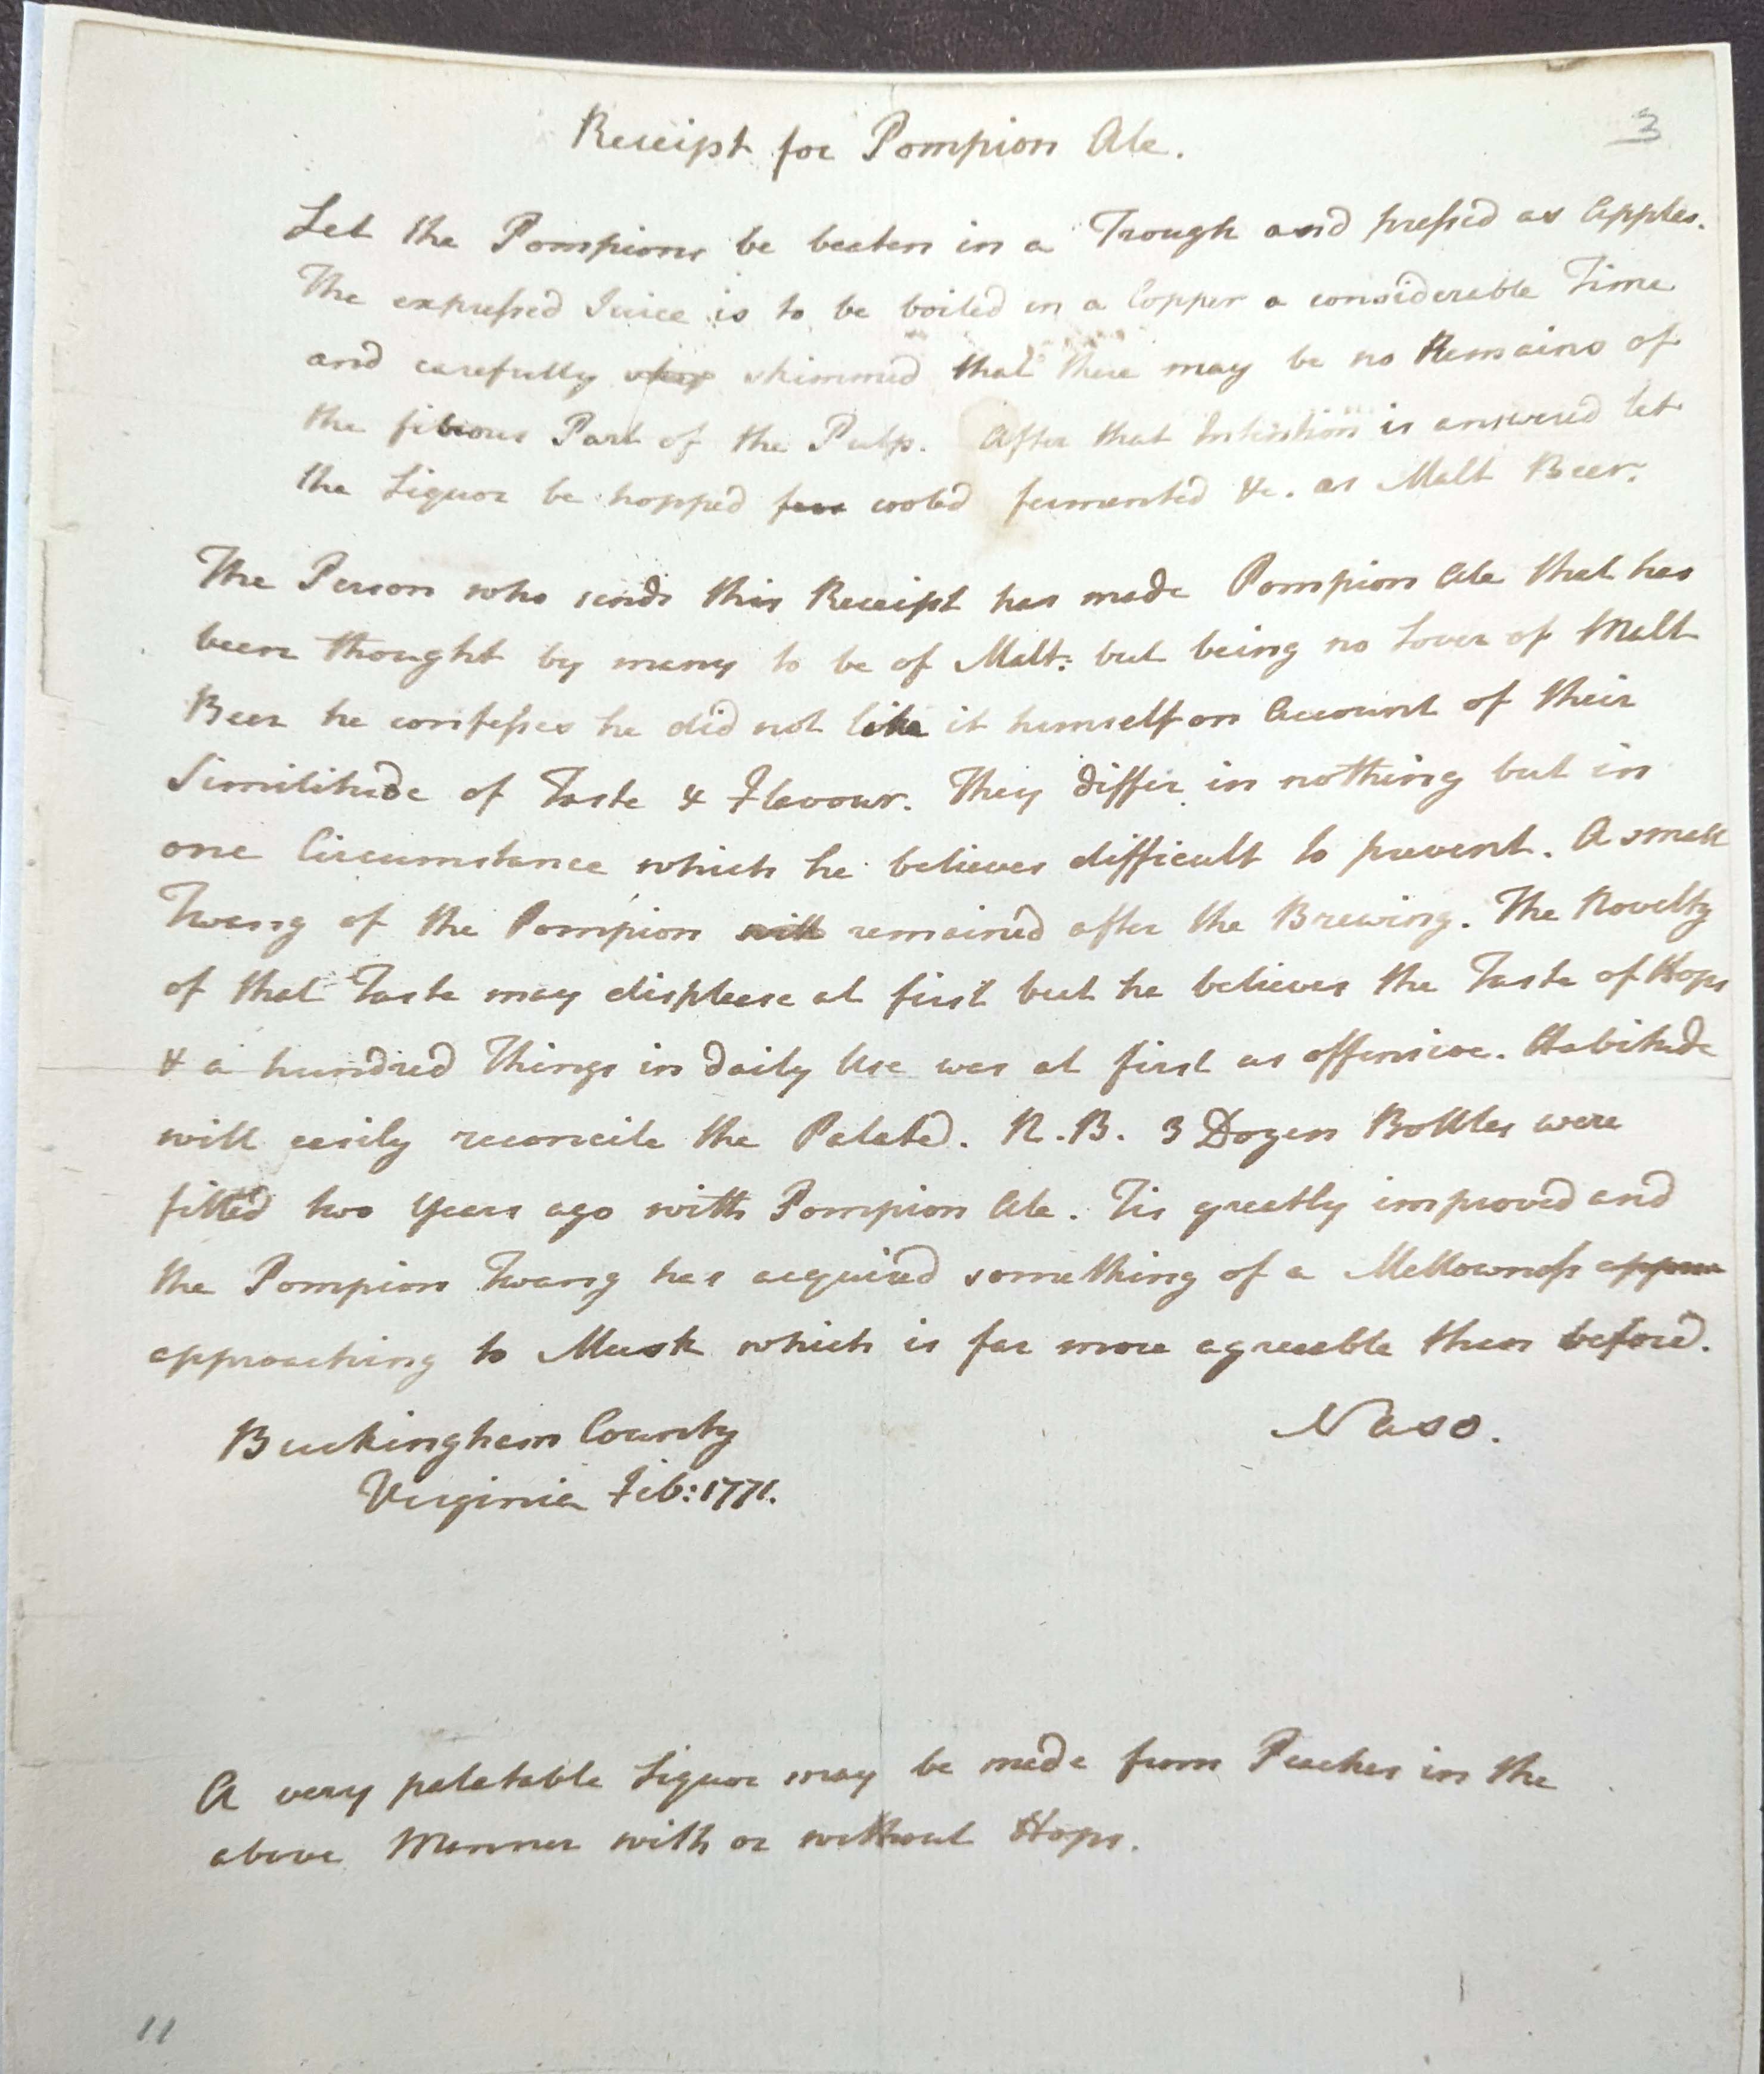 3
Receipt for Pompion Ale.
Let the Pompions be beaten in a Trough and pressed as Apples.
The expressed Juice is to be boiled in a Copper a considerable Time
and carefully skimmed that there may be no Remains of
the fibrous Part of the Pulp. After that Intention is answered let
the Liquor be hopped cooled fermented &c. as Malt Beer.
The Person who sends this Receipt has made Pompion Ale that has
been thought by many to be of Malt: but being no Lover of Malt
Beer he confesses he did not like it himself on Account of their
Similitude of Taste & Flavour. They differ in nothing but in
one Circumstance which he believes difficult to prevent. A small
Twang of the Pompion will remained after the Brewing. The Novelty
of that Taste may displease at first but he believes the Taste of Hops
& a hundred Things in daily Use was at first as offensive. Habitude
will easily reconcile the Palate. N.B. 3 Dozen Bottles were
filled two Years ago with Pompion Ale. Tis greatly improved and
the Pompion Twang has acquired something of a Mellowness
approaching to Musk which is far more agreeable than before.
Naso.
Buckingham County
Virginia Feb: 1771.
A very palatable Liquor may be made from Peaches in the
above Manner with or without Hops.
11